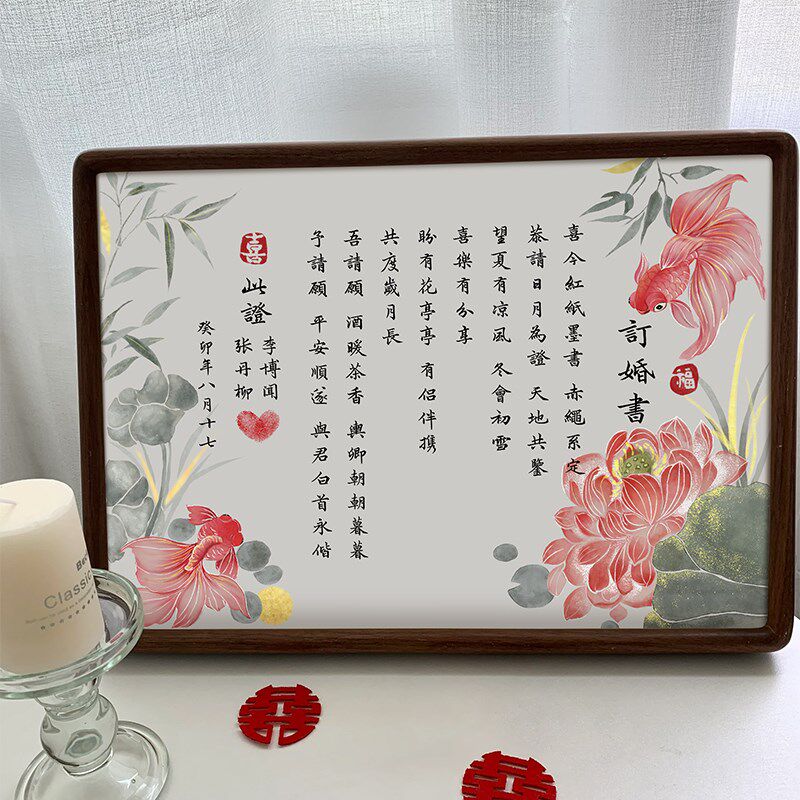 訂婚書
福
喜今紅紙墨書 赤繩系定
恭請日月為證 天地共鑒
望夏有凉風 冬會初雪
喜樂有分享
盼有花亭亭 有侣伴携
共度歲月長
吾請願 酒暖茶香 與卿朝朝暮暮
予請願 平安順遂 與君白首永偕
喜
此證
李博聞
張丹柳
癸卯年八月十七
Classic
囍
囍